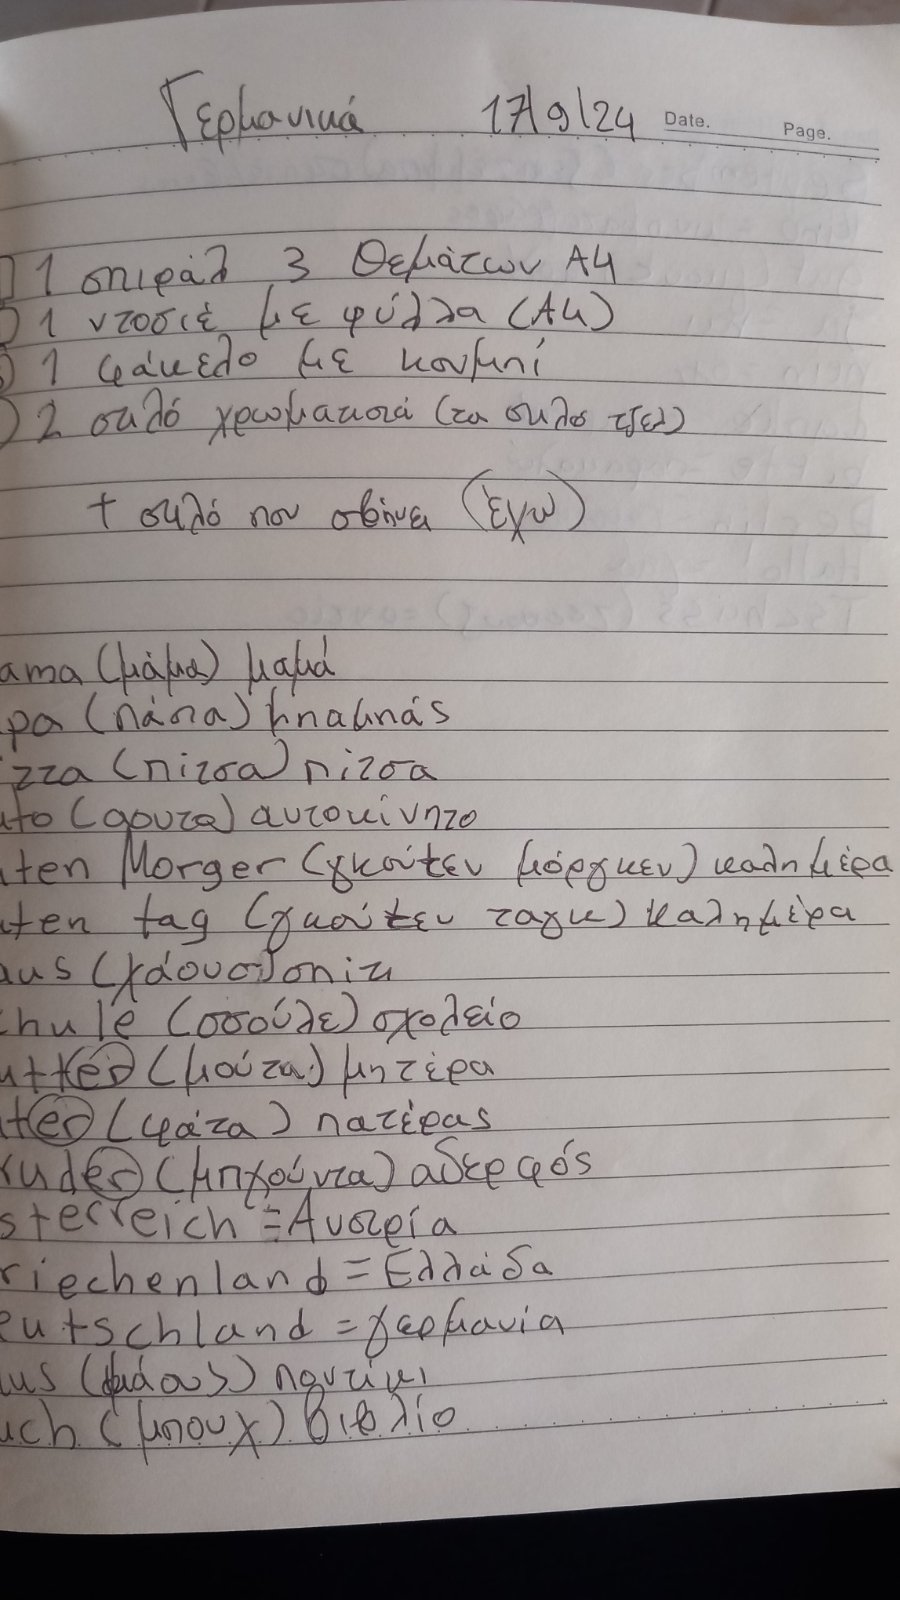 Γερμανικά 17/9/24 Date. Page.
1 σπιράλ 3 θεμάτων A4
1 ντοσιέ με φύλλα (A4)
1 φάκελο με κουμπί
2 στυλό χρωματιστά (τα στυλό τζελ)
+ στυλό που σβήνει (έχω)
ama (μάμα) μαμά
pa (πάπα) μπαμπάς
izza (πίτσα) πίτσα
uto (αουτο) αυτοκίνητο
uten Morger (γκούτεν μόργκεν) καλημέρα
uten tag (γκούτεν ταγκ) καλημέρα
aus (χάουσ) σπίτι
chule (σσούλε) σχολείο
utter (μούτα) μητέρα
ter (φάτα) πατέρας
ruder (μπχούντα) αδερφός
sterreich = Αυστρία
riechenland = Ελλάδα
eutschland = γερμανία
aus (μάους) ποντίκι
uch (μπουχ) βιβλίο